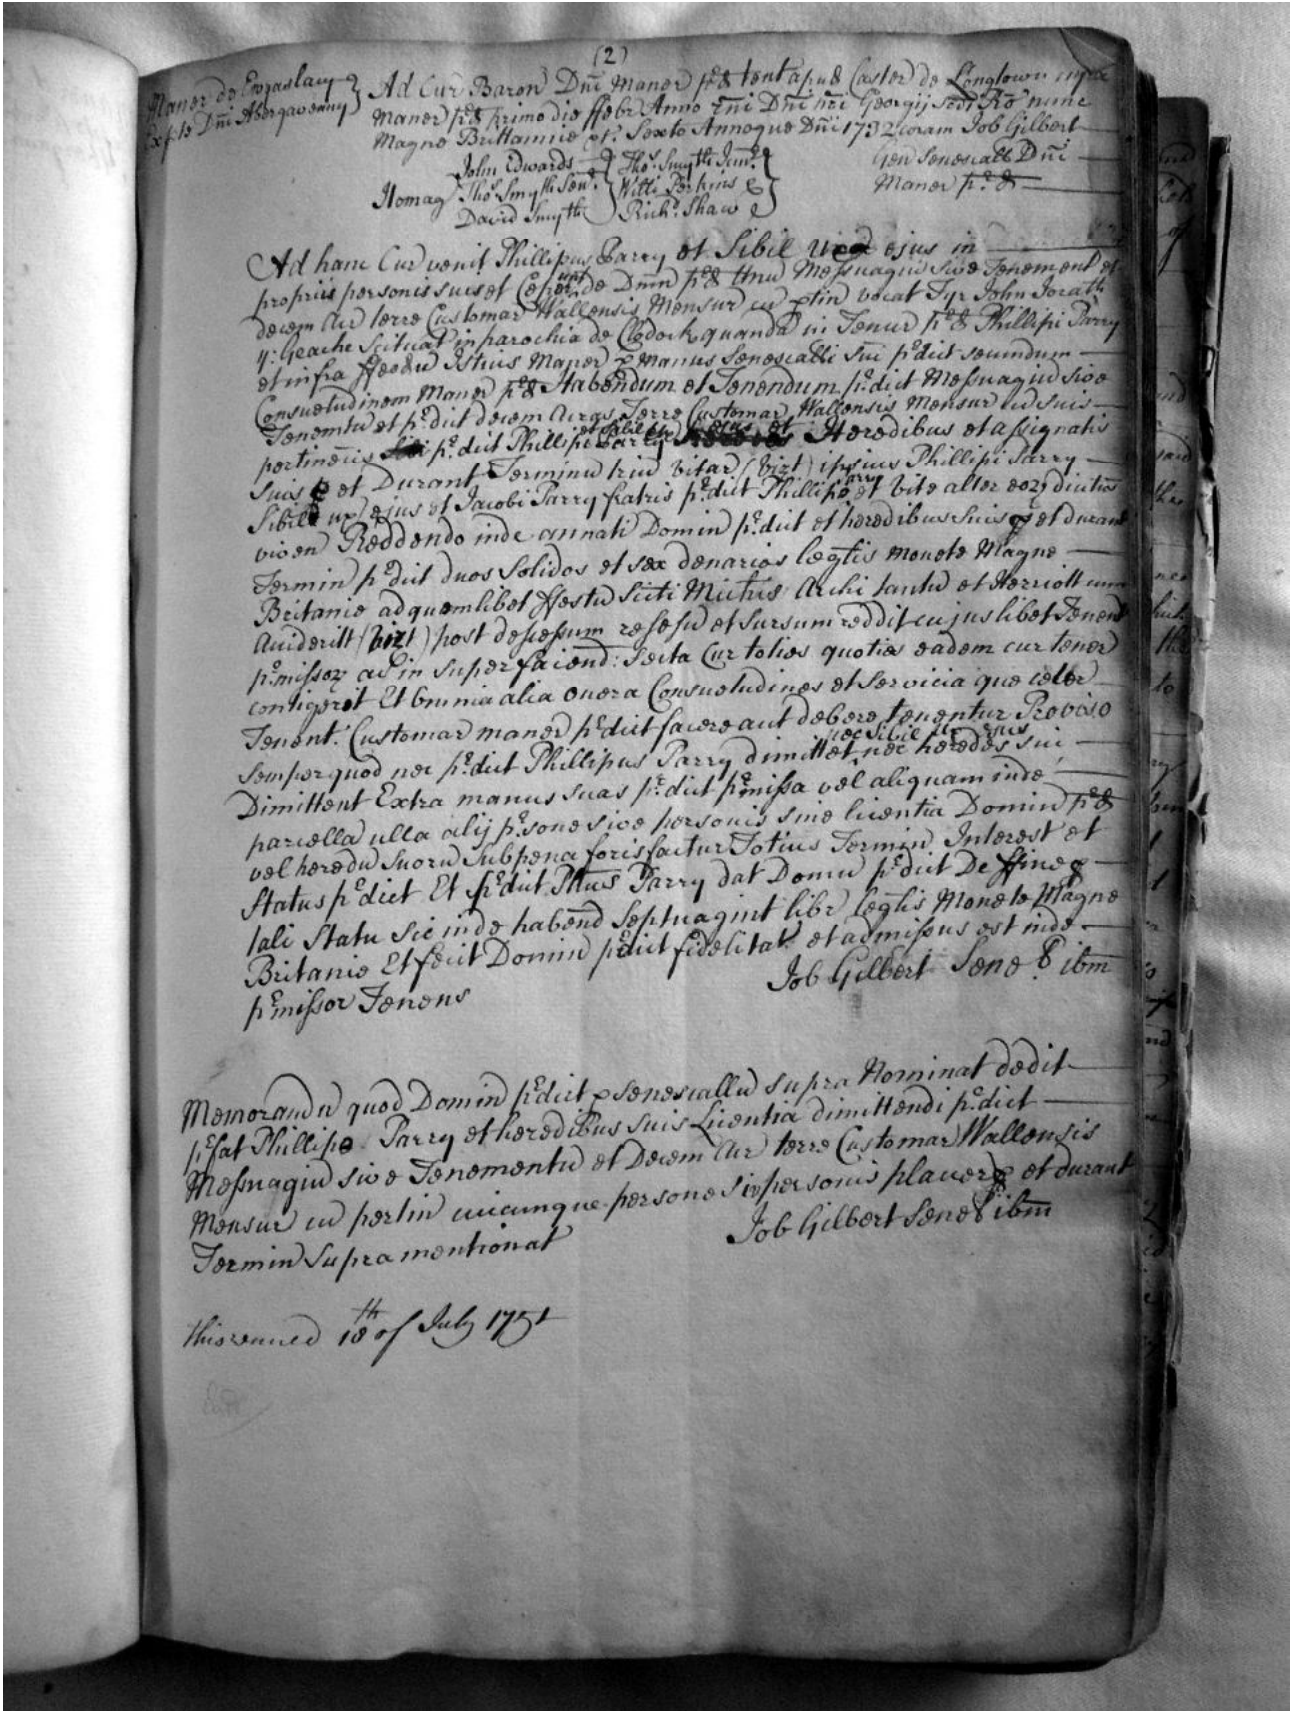 (2)
Maner de Ewyaslacy
Ex pte Dni Abergavenny
Ad Cur Baron Dni Maner prd tent apud Caster de Longtown infra
Maner prd primo die ffebr Anno rni Dni nri Georgij Scdi Ro nunc
Magne Brittannie &c Sexto Annoque Dni 1732 coram Job Gilbert
Gen Senescall Dni
Maner prd
Homag
John Edwards
Thos Smyth Senr
David Smyth
Thos Smyth Junr
Willi Perkins
Richd Shaw
Ad hanc Cur venit Phillipus Parry et Sibil Uxor ejus in
propriis personis suis et Ceper unt de Dnm prd Unu Messuagiu sive Tenement et
decem Acr terre Customar Wallensis Mensur cu ptin vocat Tyr John Jorath
y: Geache Scituat in parochia de Clodock quanda in Tenur prd Phillipi Parry
et infra ffeodu Istius Maner p manus Senescalli sui prdict secundum
Consuetudinem Maner prd Habendum et Tenendum prdict Messuagiu sive
Tenemtu et prdict decem Acras Terre Customar Wallensis Mensur cu suis
pertinenciis prdict Phillipo Parry et Sibil ux ejus et Heredibus et assignatis
suis et Durant Terminu triu vitar (vizt) ipsius Phillipi Parry
Sibil ux ejus et Jacobi Parry fratris prdict Phillipi Parry et vite alter eoz diutius
viven Reddendo inde annati Domin prdict et heredibus suis et durant
Termin prdict duos Solidos et sex denarios leglis monete Magne
Britanie ad quemlibet ffestu Scti Michis Archi tantu et Herriott cum
Acciderit (vizt) post decessum recessu et sursum reddit cujuslibet Tenent
prmissoz ac in super faciend: Secta Cur tolies quoties eadem cur tener
contigerit Et Omnia alia onera Consuetudines et Servicia que ceter
Tenent Customar maner prdict facere aut debere tenentur Proviso
semper quod nec prdict Phillipus Parry dimittet nec Sibil Ux ejus nec heredes sui
Dimittent Extra manus suas prdict prmissa vel aliquam inde
parcella ulla alij prsone sive personis sine licentia Domin prd
vel heredu Suoru Sub pena forisfactur Totius Termin Interest et
Status prdict Et prdict Phus Parry dat Domin prdict De ffine p
tali Statu Sic inde habend Septuagint libr leglis Monete Magne
Britanie Et fecit Domin prdict fidelitat et admissus est inde
prmissor Tenens
Job Gilbert Senes ibm
Memorandu quod Domin prdict p senescallu supra Nominat dedit
prfat Phillipo Parry et heredibus suis Licentia dimittendi prdict
Messuagiu sive Tenementu et Decem Acr terre Customar Wallensis
Mensur cu pertin cuicunque persone sive personis placere et durant
Termin Supra mentionat
Job Gilbert Senes ibm
this 18th of July 1751